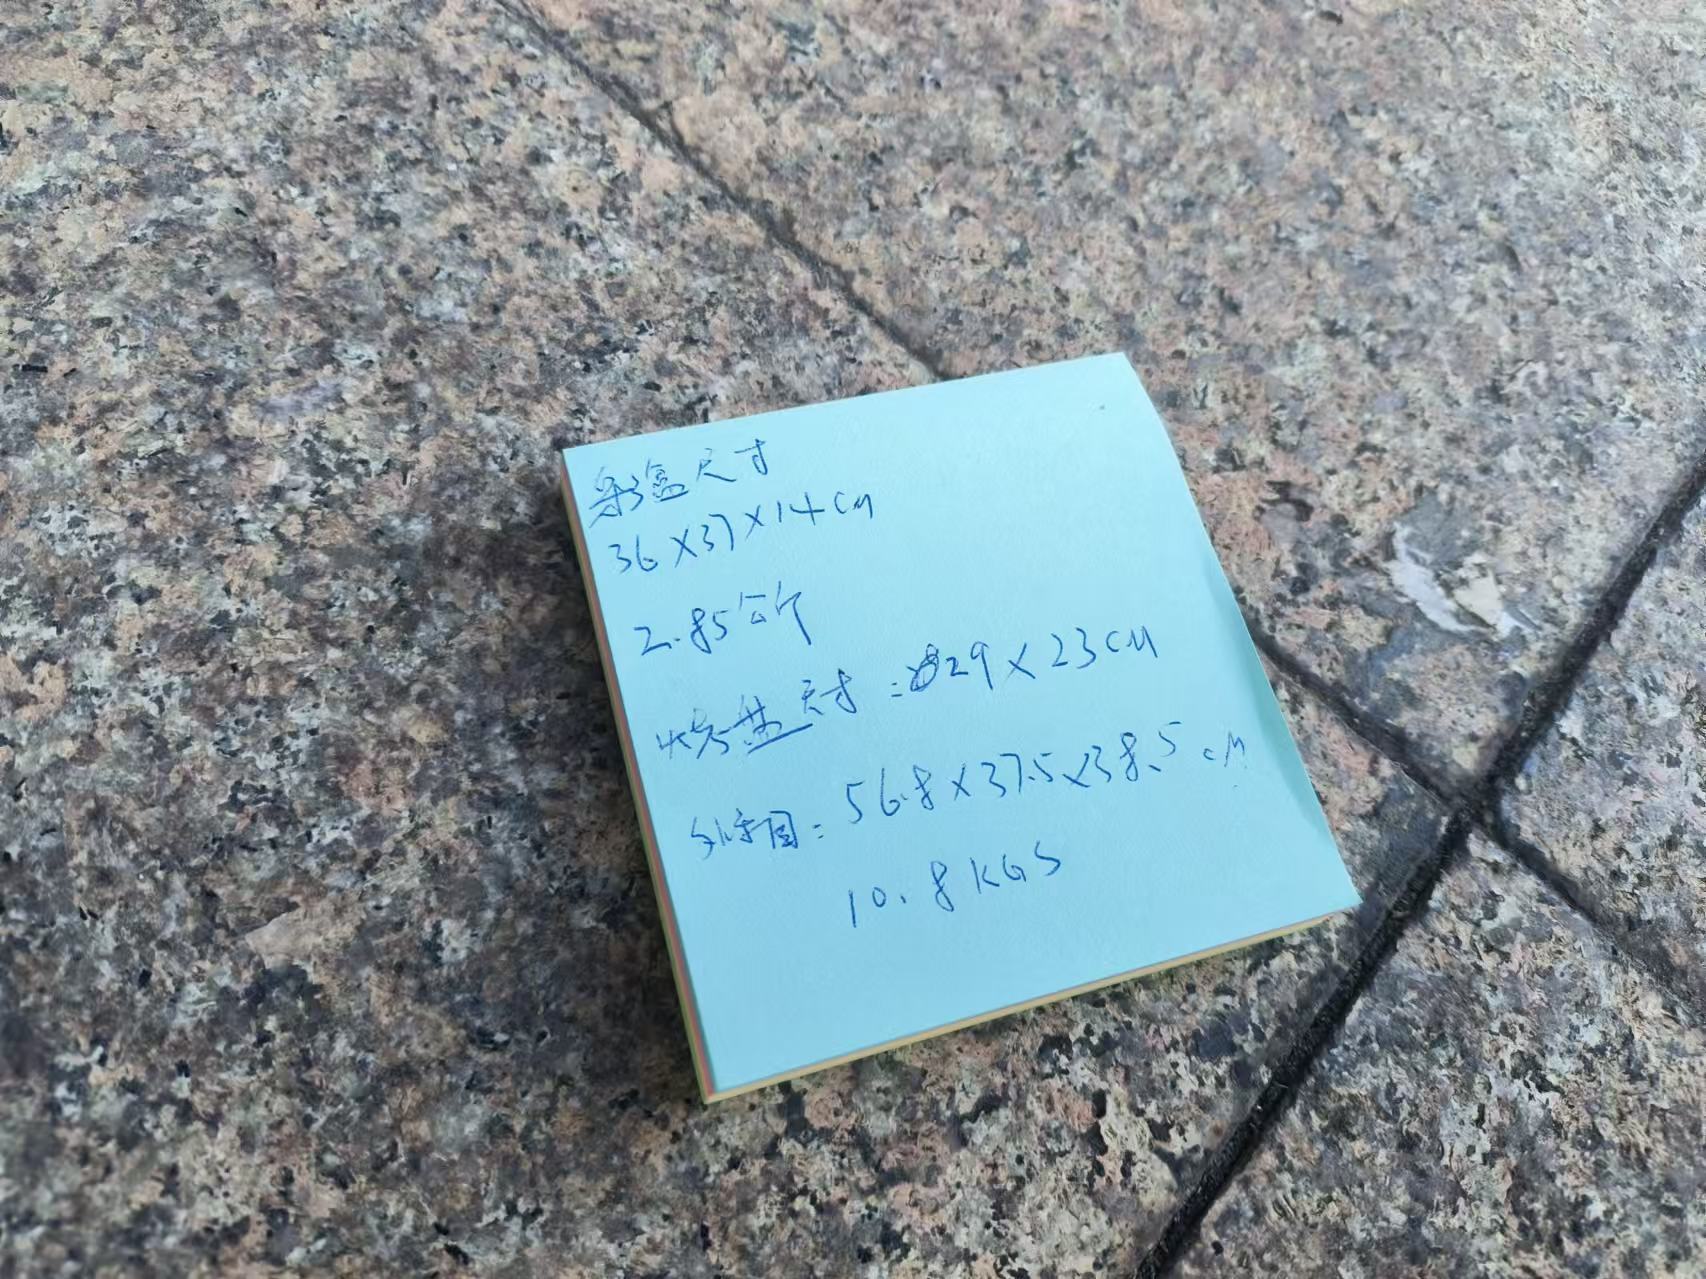 彩盒尺寸
36×37×14CM
2.85公斤
烤盘尺寸:29×23CM
外箱:56.8×37.5×38.5CM
10.8KGS